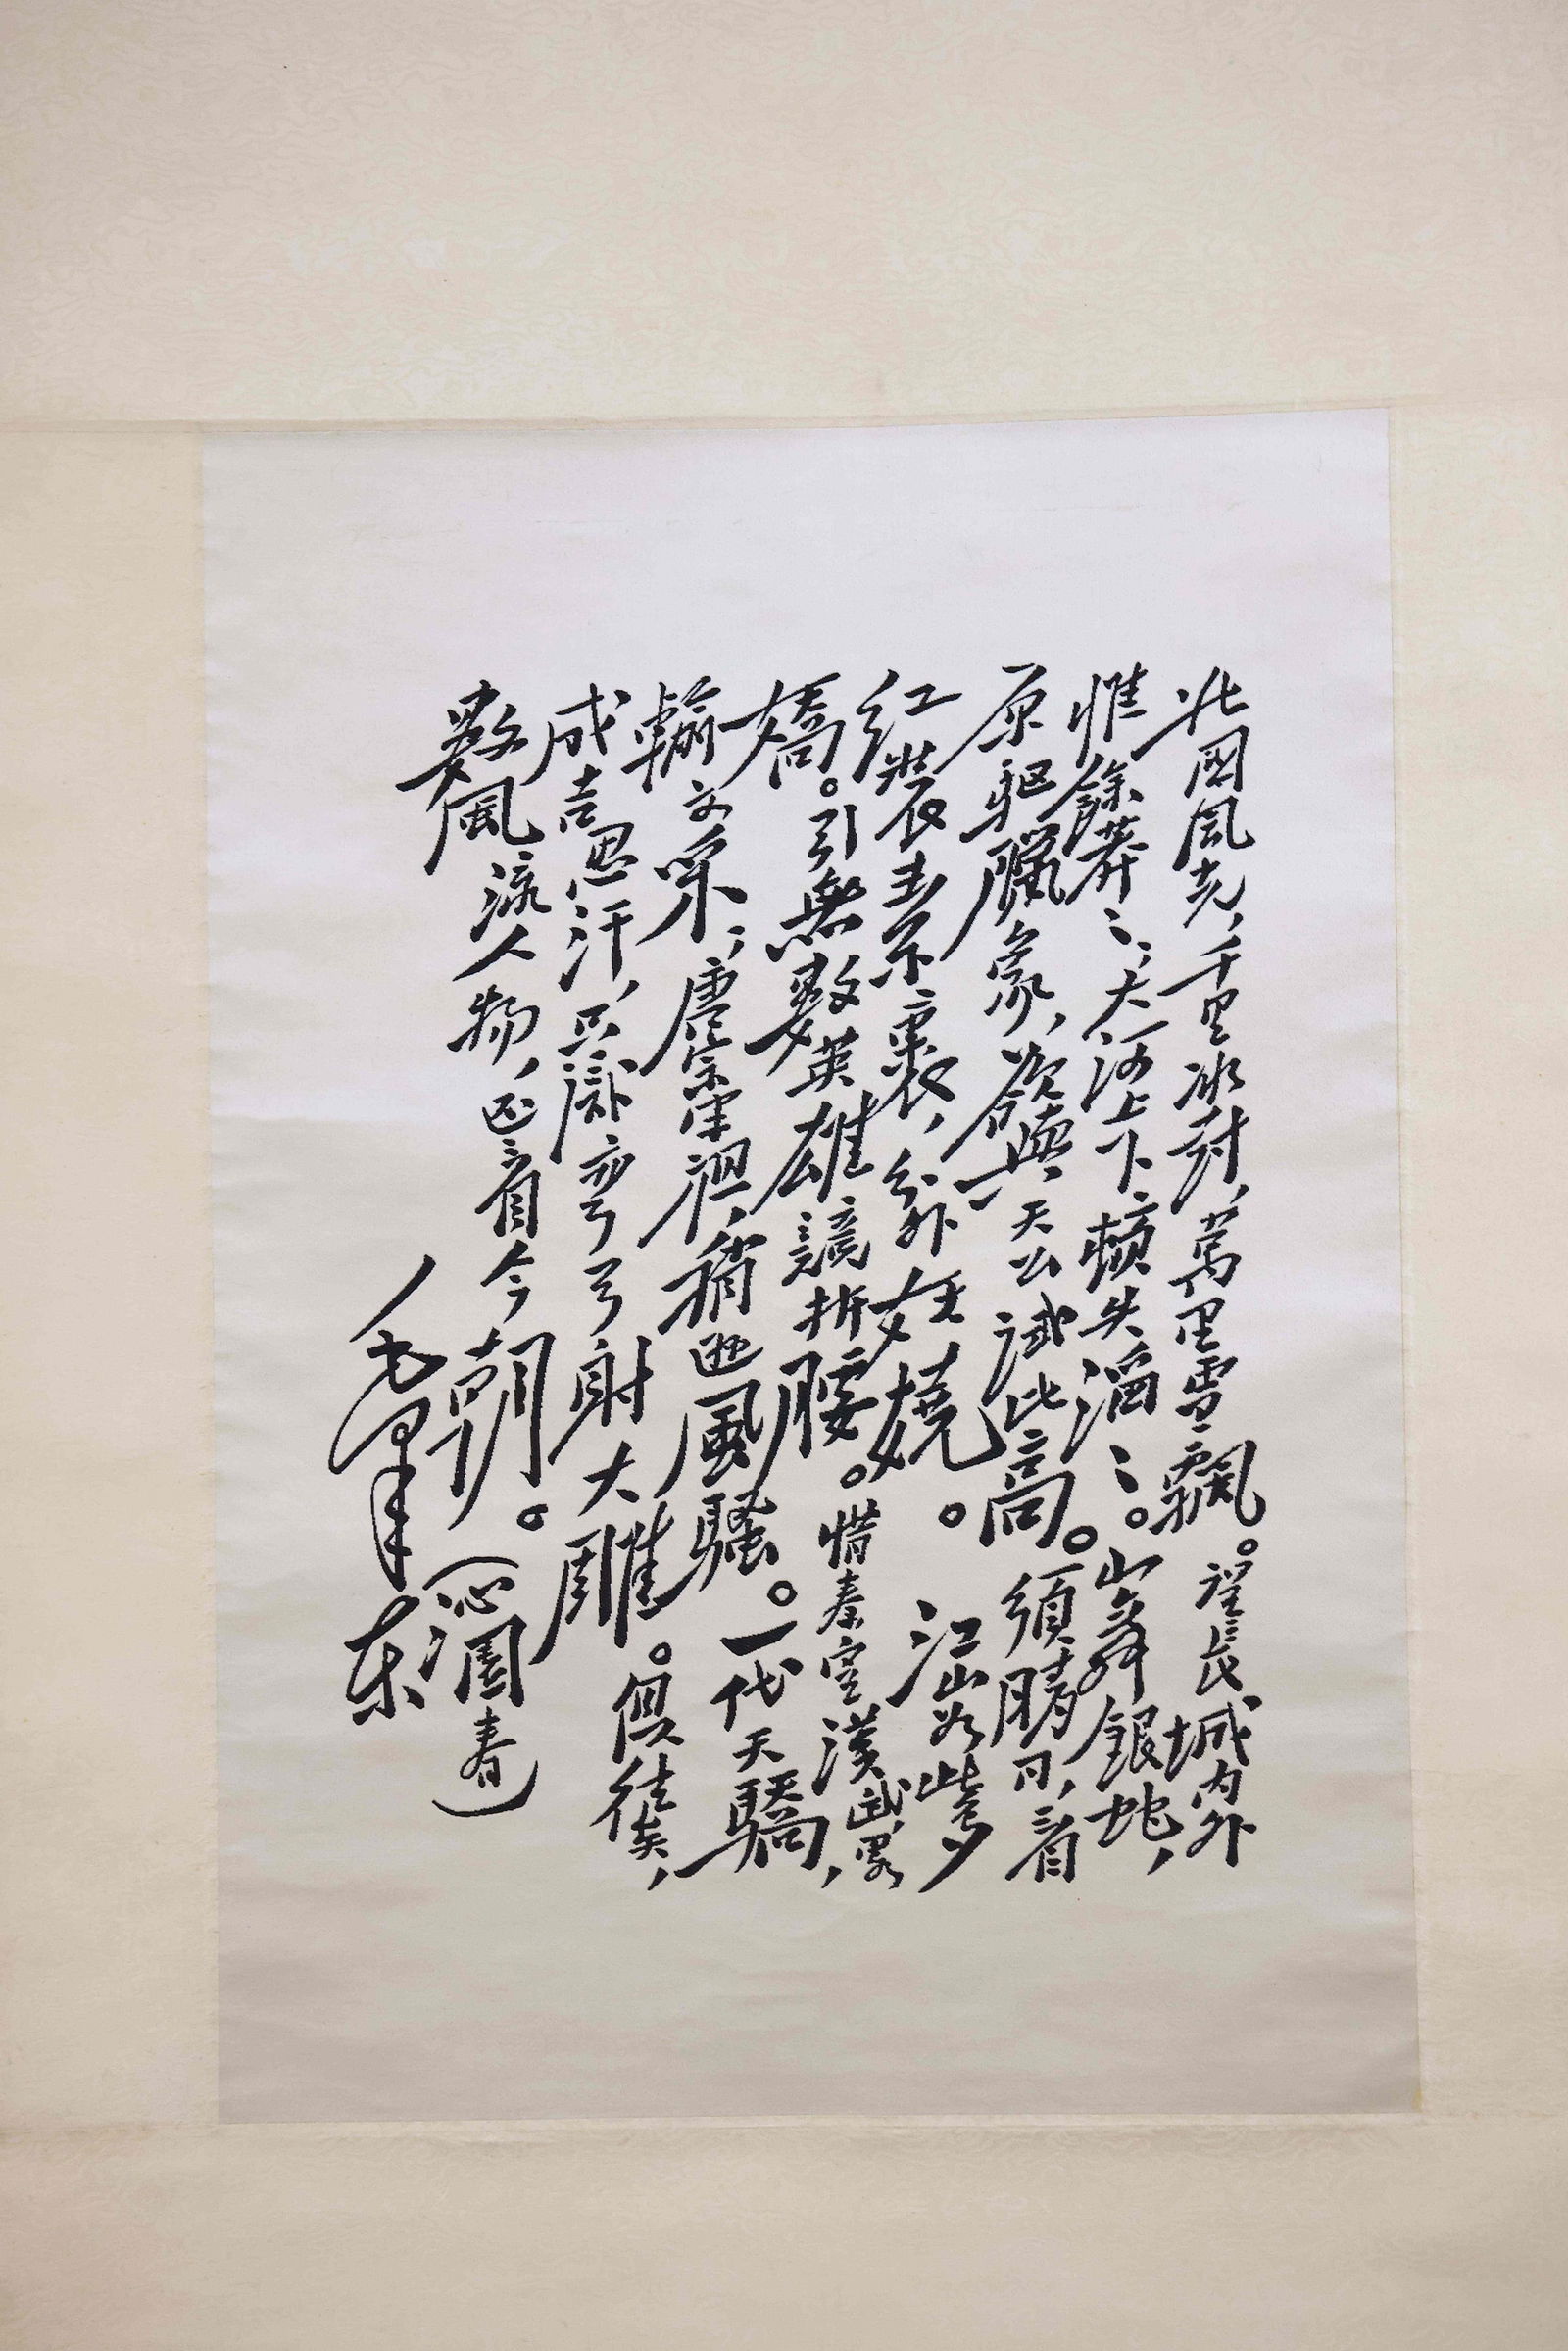 北國風光，千里冰封，萬里雪飄。望長城內外
惟餘莽〻，大河上下頓失滔〻。山舞銀蛇，
原驅臘象，欲與天公試比高。須晴日，看
紅裝素裹，分外妖嬈。江山如此多
嬌。引無數英雄競折腰。惜秦皇漢武略
輸文采，唐宗宋祖，稍遜風騷。一代天驕，
成吉思汗，只識彎弓射大雕。俱往矣，
數風流人物，還看今朝。（沁園春）
毛澤东